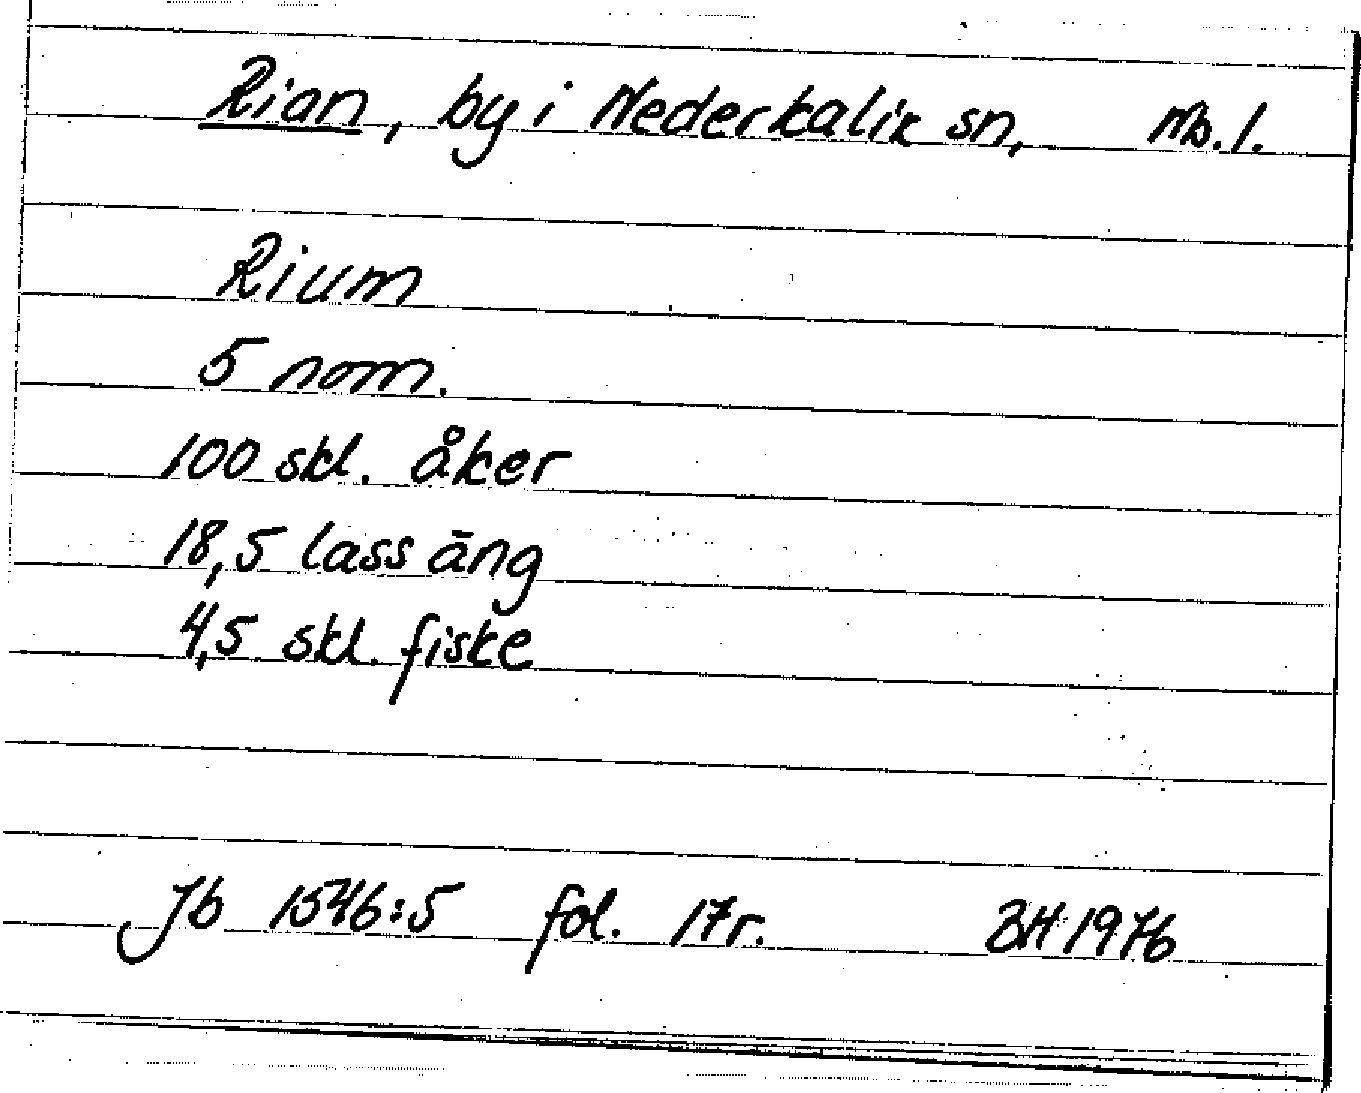 Rian, by i Nederkalix sn, Nb. l.
Rium
5 nom.
100 skl. åker
18,5 lass äng
4,5 skl. fiske
Jb 1546:5 fol. 17r. BH 1976